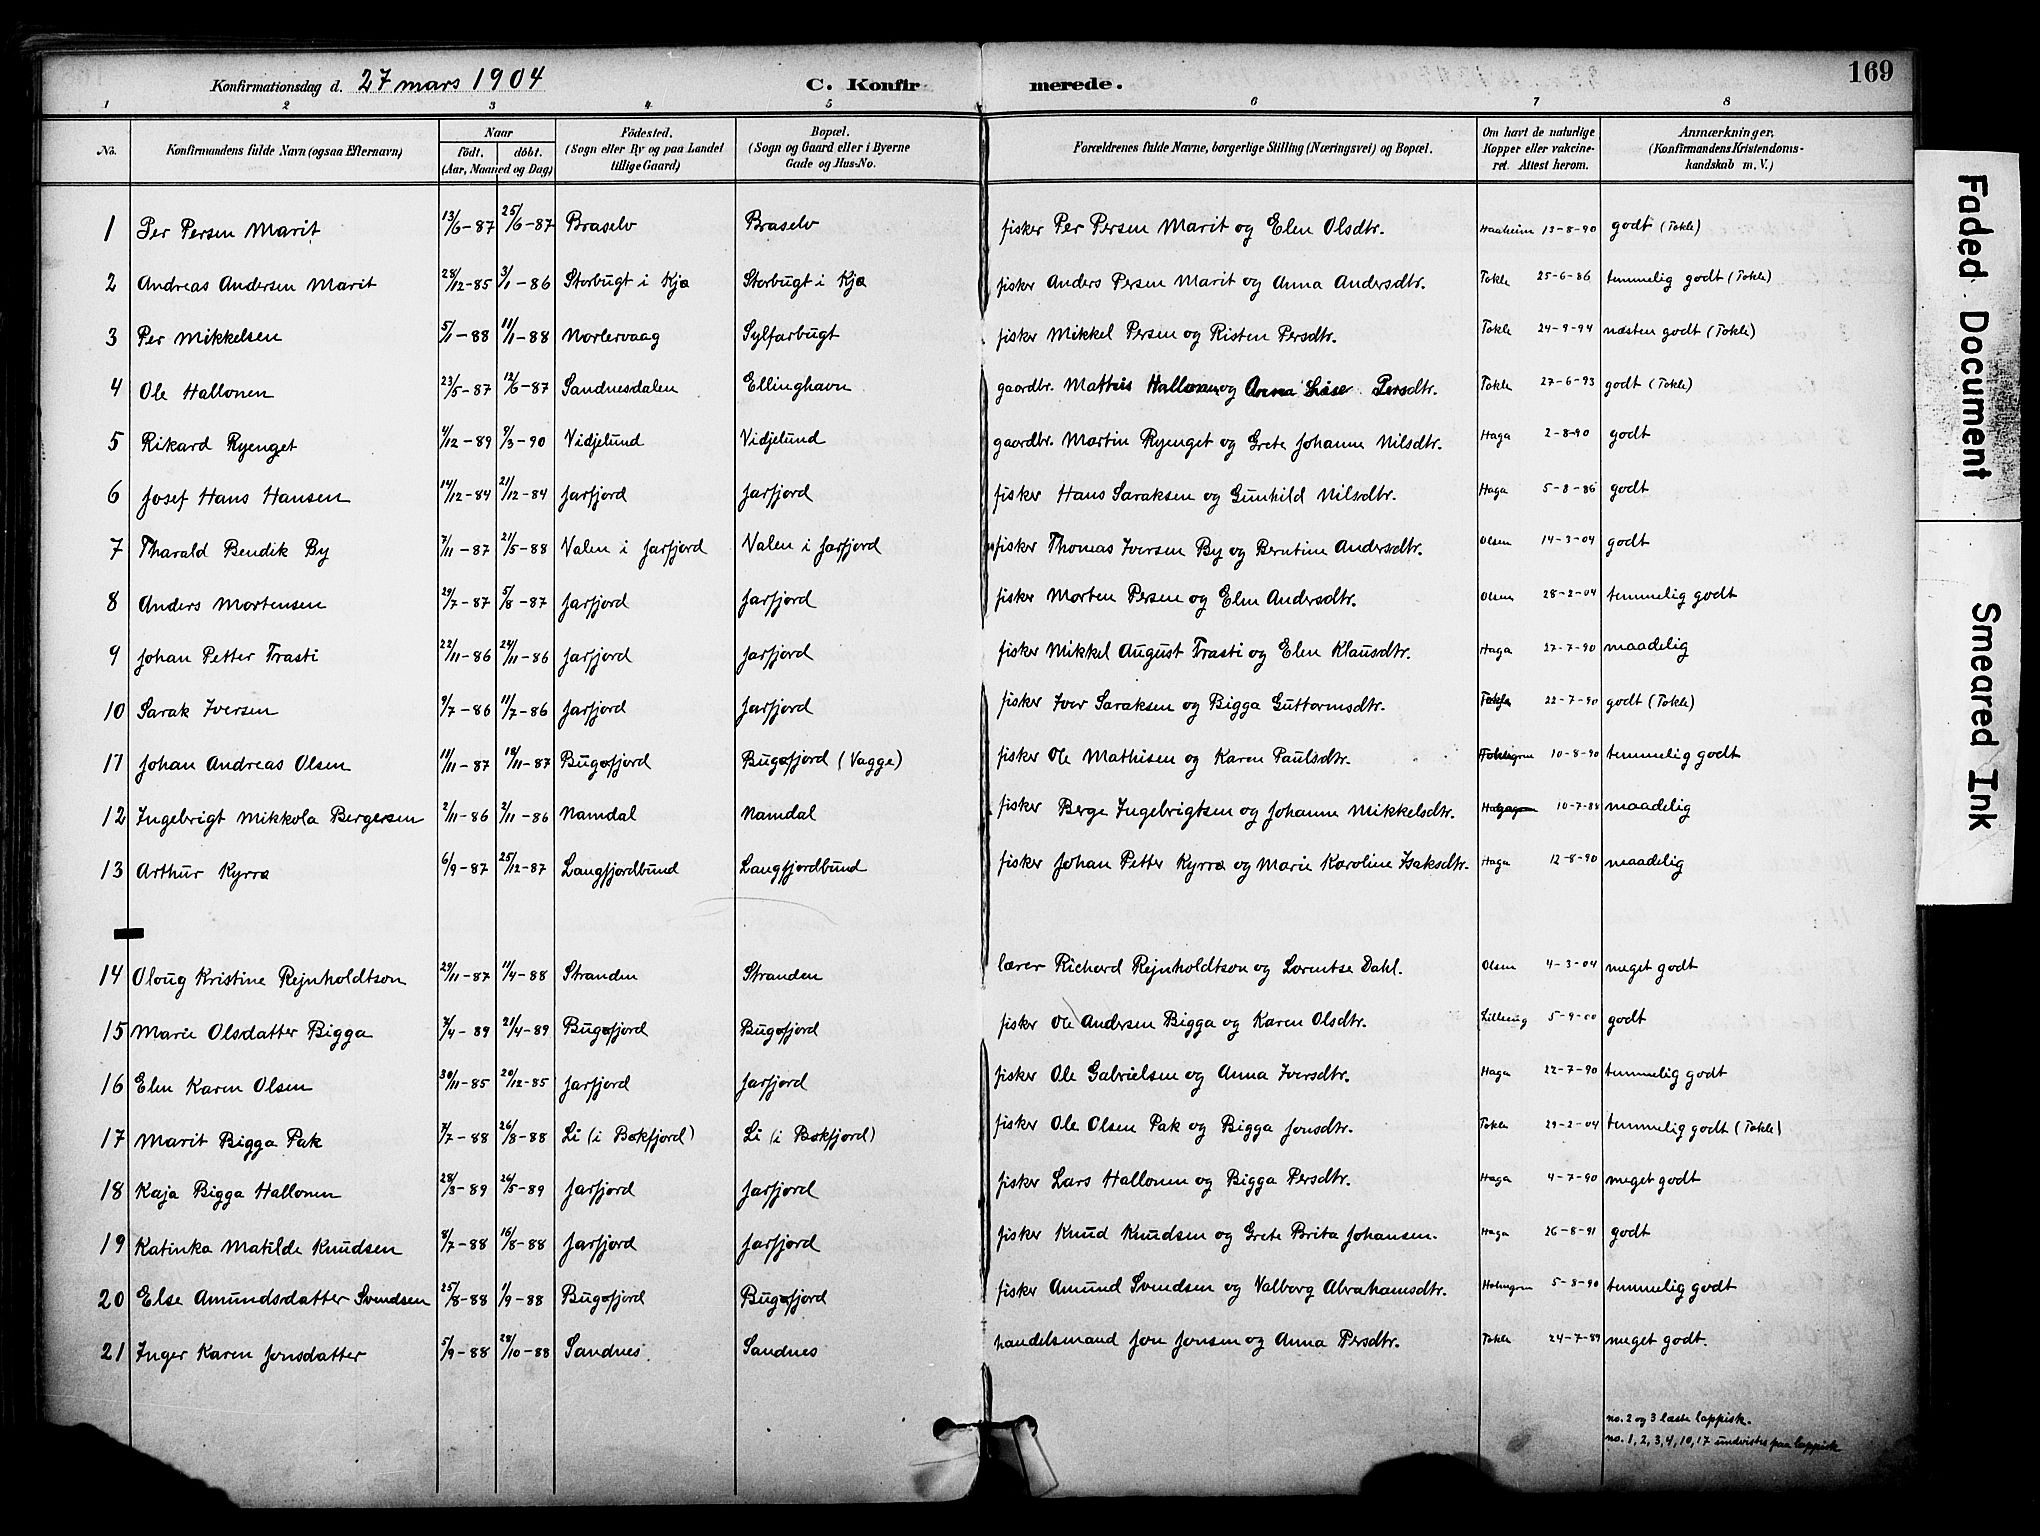 Konfirmationsdag d. 27 mars 1904 C. Konfirmerede. 169
1 2 3 4 5 6 7 8
No. Konfirmandens fulde Navn (ogsaa Efternavn) Naar født. døbt. (Aar, Maaned og Dag) Fødested. (Sogn eller By og paa Landet tillige Gaard) Bopæl. (Sogn og Gaard eller i Byerne Gade og Hus-No. Forældrenes fulde Navne, borgerlige Stilling (Næringsvei) og Bopæl. Om havt de naturlige Kopper eller vakcineret. Attest herom. Anmærkninger, (Konfirmandens Kristendomskundskab m. V.)
1 Per Persen Marit 13/6-87 25/6-87 Braselv Braselv fisker Per Persen Marit og Elen Olsdtr. Haaheim 13-8-90 godt (Tokle)
2 Andreas Andersen Marit 28/12-85 3/1-86 Storbugt i Kjø Storbugt i Kjø fisker Anders Persen Marit og Anna Andersdtr. Tokle 25-6-86 temmelig godt (Tokle)
3 Per Mikkelsen 5/1-88 11/1-88 Norlervaag Sylfarbugt fisker Mikkel Persen og Risten Persdtr. Tokle 24-9-94 næsten godt (Tokle)
4 Ole Hallonen 23/5-87 12/6-87 Sandnesdalen Ellinghavn gaardbr. Mathis Hallonen og Persdtr. Tokle 27-6-93 godt (Tokle)
5 Rikard Ryenget 4/12-89 9/3-90 Vidjelund Vidjelund gaardbr. Martin Ryenget og Grete Johanne Nilsdtr. Haga 2-8-90 godt
6 Josef Hans Hansen 14/12-84 21/12-84 Jarfjord Jarfjord fisker Hans Saraksen og Gunhild Nilsdtr. Haga 5-8-86 godt
7 Tharald Bendik By 7/11-87 21/5-88 Valen i Jarfjord Valen i Jarfjord fisker Thomas Iversen By og Berntine Andersdtr. Olsen 14-3-04 godt
8 Anders Mortensen 29/7-87 5/8-87 Jarfjord Jarfjord fisker Morten Persen og Elen Andersdtr. Olsen 28-2-04 temmelig godt
9 Johan Petter Trasti 22/11-86 24/11-86 Jarfjord Jarfjord fisker Mikkel August Trasti og Elen Klausdtr. Haga 27-7-90 maadelig
10 Sarak Iversen 9/7-86 11/7-86 Jarfjord Jarfjord fisker Iver Saraksen og Bigga Guttormsdtr. 22-7-90 godt (Tokle)
11 Johan Andreas Olsen 11/11-87 18/11-87 Bugøfjord Bugøfjord (Vagge) fisker Ole Mathisen og Karen Paulsdtr. 10-8-90 temmelig godt
12 Ingebrigt Mikkola Bergersen 2/11-86 3/11-86 Namdal Namdal fisker Berge Ingebrigtsen og Johanne Mikkelsdtr. 10-7-88 maadelig
13 Arthur Kyrrø 6/9-87 25/12-87 Langfjordbund Langfjordbund fisker Johan Petter Kyrrø og Marie Karoline Isaksdtr. Haga 12-8-90 maadelig
14 Oloug Kristine Rejnholdtson 29/11-87 11/4-88 Stranden Stranden lærer Richard Rejnholdtson og Lorentse Dahl. Olsen 4-3-04 meget godt
15 Marie Olsdatter Bigga 7/4-89 21/4-89 Bugøfjord Bugøfjord fisker Ole Andersen Bigga og Karen Olsdtr. 5-9-00 godt
16 Elen Karen Olsen 30/11-85 20/12-85 Jarfjord Jarfjord fisker Ole Gabrielsen og Anna Iversdtr. Haga 22-7-90 temmelig godt
17 Marit Bigga Pak 7/7-88 26/8-88 Li (i Bøkfjord) Li (i Bøkfjord) fisker Ole Olsen Pak og Bigga Jonsdtr. Tokle 29-2-04 temmelig godt (Tokle)
18 Kaja Bigga Hallonen 28/3-89 26/5-89 Jarfjord Jarfjord fisker Lars Hallonen og Bigga Persdtr. Haga 4-7-90 meget godt
19 Katinka Matilde Knudsen 8/7-88 16/8-88 Jarfjord Jarfjord fisker Knud Knudsen og Grete Brita Johansen. Haga 26-8-91 godt
20 Else Amundsdatter Svendsen 25/8-88 1/9-88 Bugøfjord Bugøfjord fisker Amund Svendsen og Valborg Abrahamsdtr. Holmgren 5-8-90 temmelig godt
21 Inger Karen Jonsdatter 5/9-88 28/10-88 Sandnes. Sandnes handelsmand Jon Jonsen og Anna Persdtr. Tokle 24-7-89 meget godt.
no. 2 og 3 læste lappisk.
no. 1, 2, 3, 4, 10, 17 undvistes paa lappisk
Faded Document
Smeared Ink